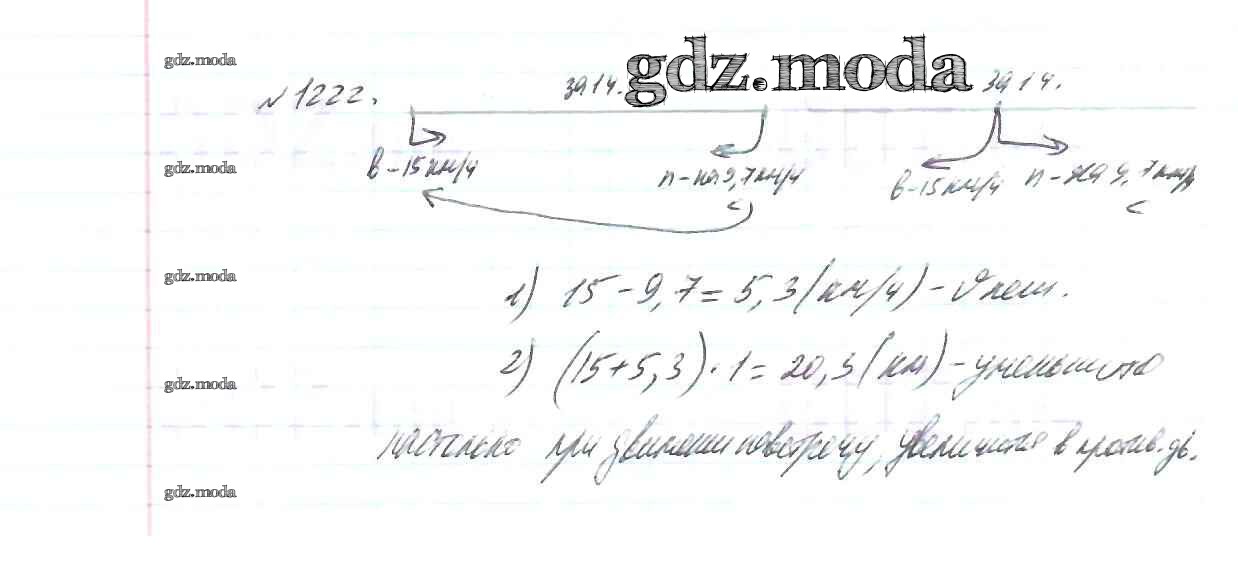 gdz.moda
gdz.moda
№1222.
за 1 ч.
за 1 ч.
gdz.moda
в - 15 км/ч
п - на 9,7 км/ч
<
в - 15 км/ч
п - на 9,7 км/ч
<
gdz.moda
1) 15 - 9,7 = 5,3 (км/ч) - υ пеш.
gdz.moda
2) (15+5,3) · 1 = 20,3 (км) - уменьшится
настолько при движении навстречу, увеличится в против. дв.
gdz.moda